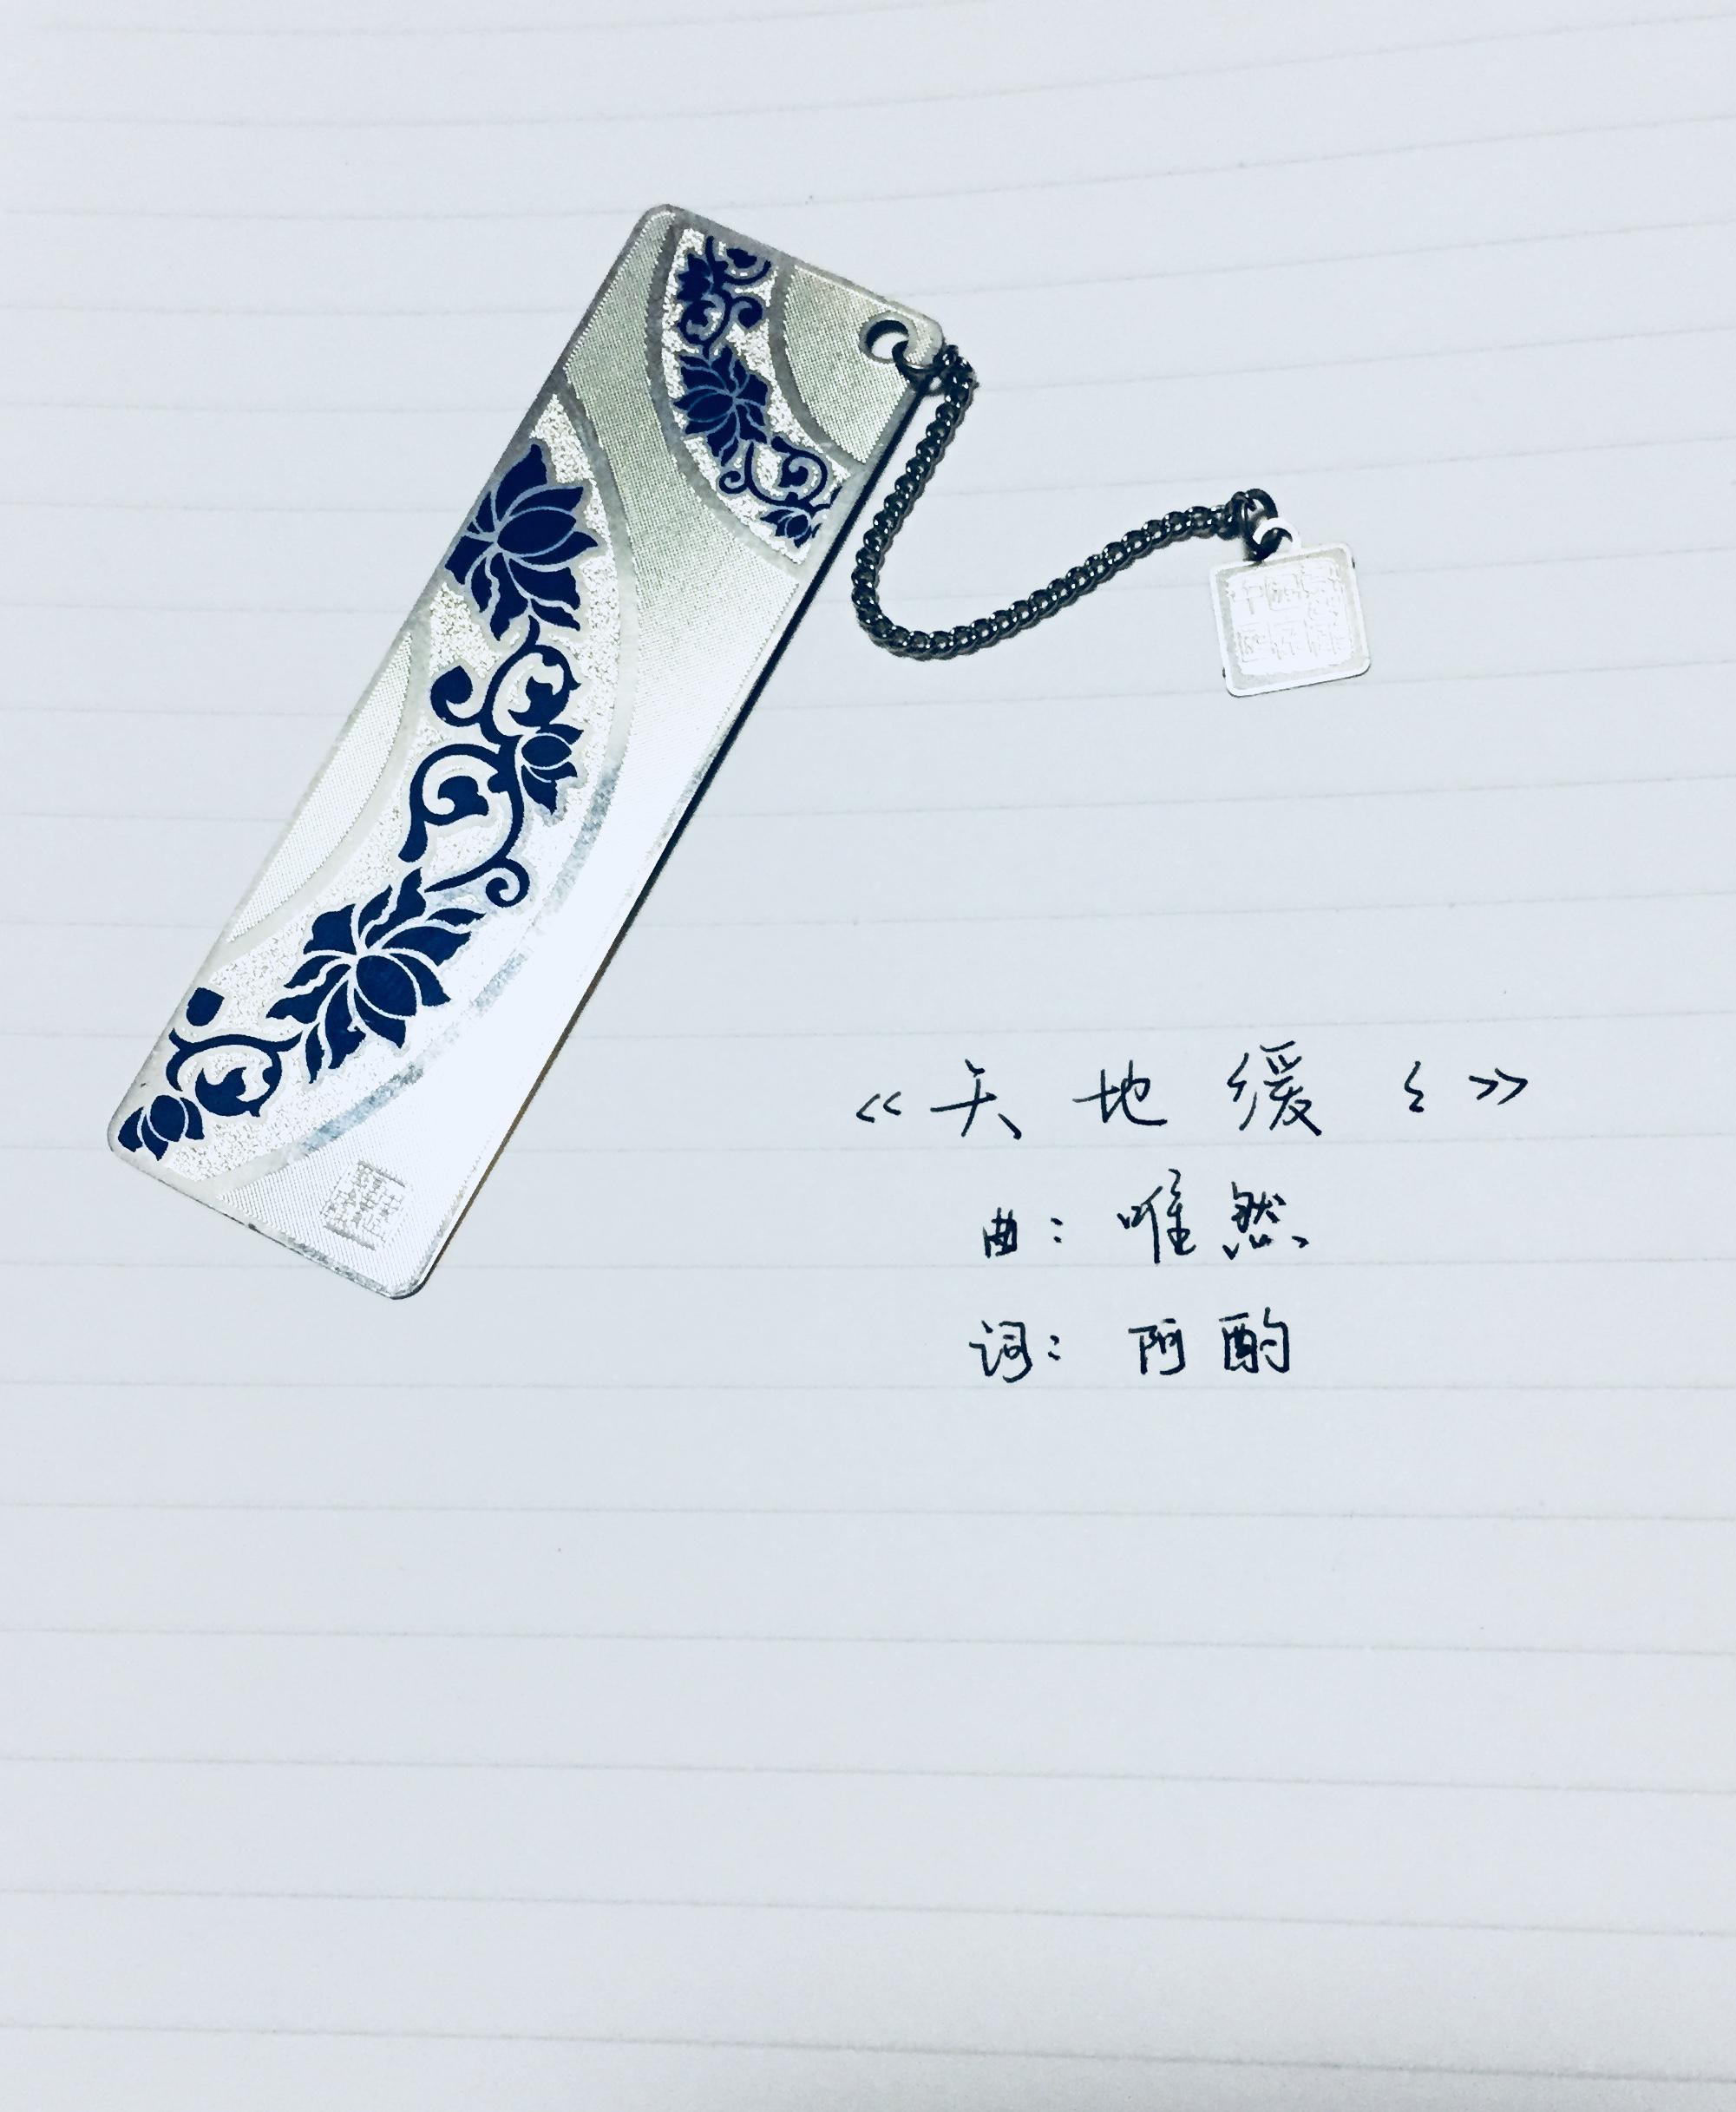 《天地缓缓》
曲：唯然
词：阿酌